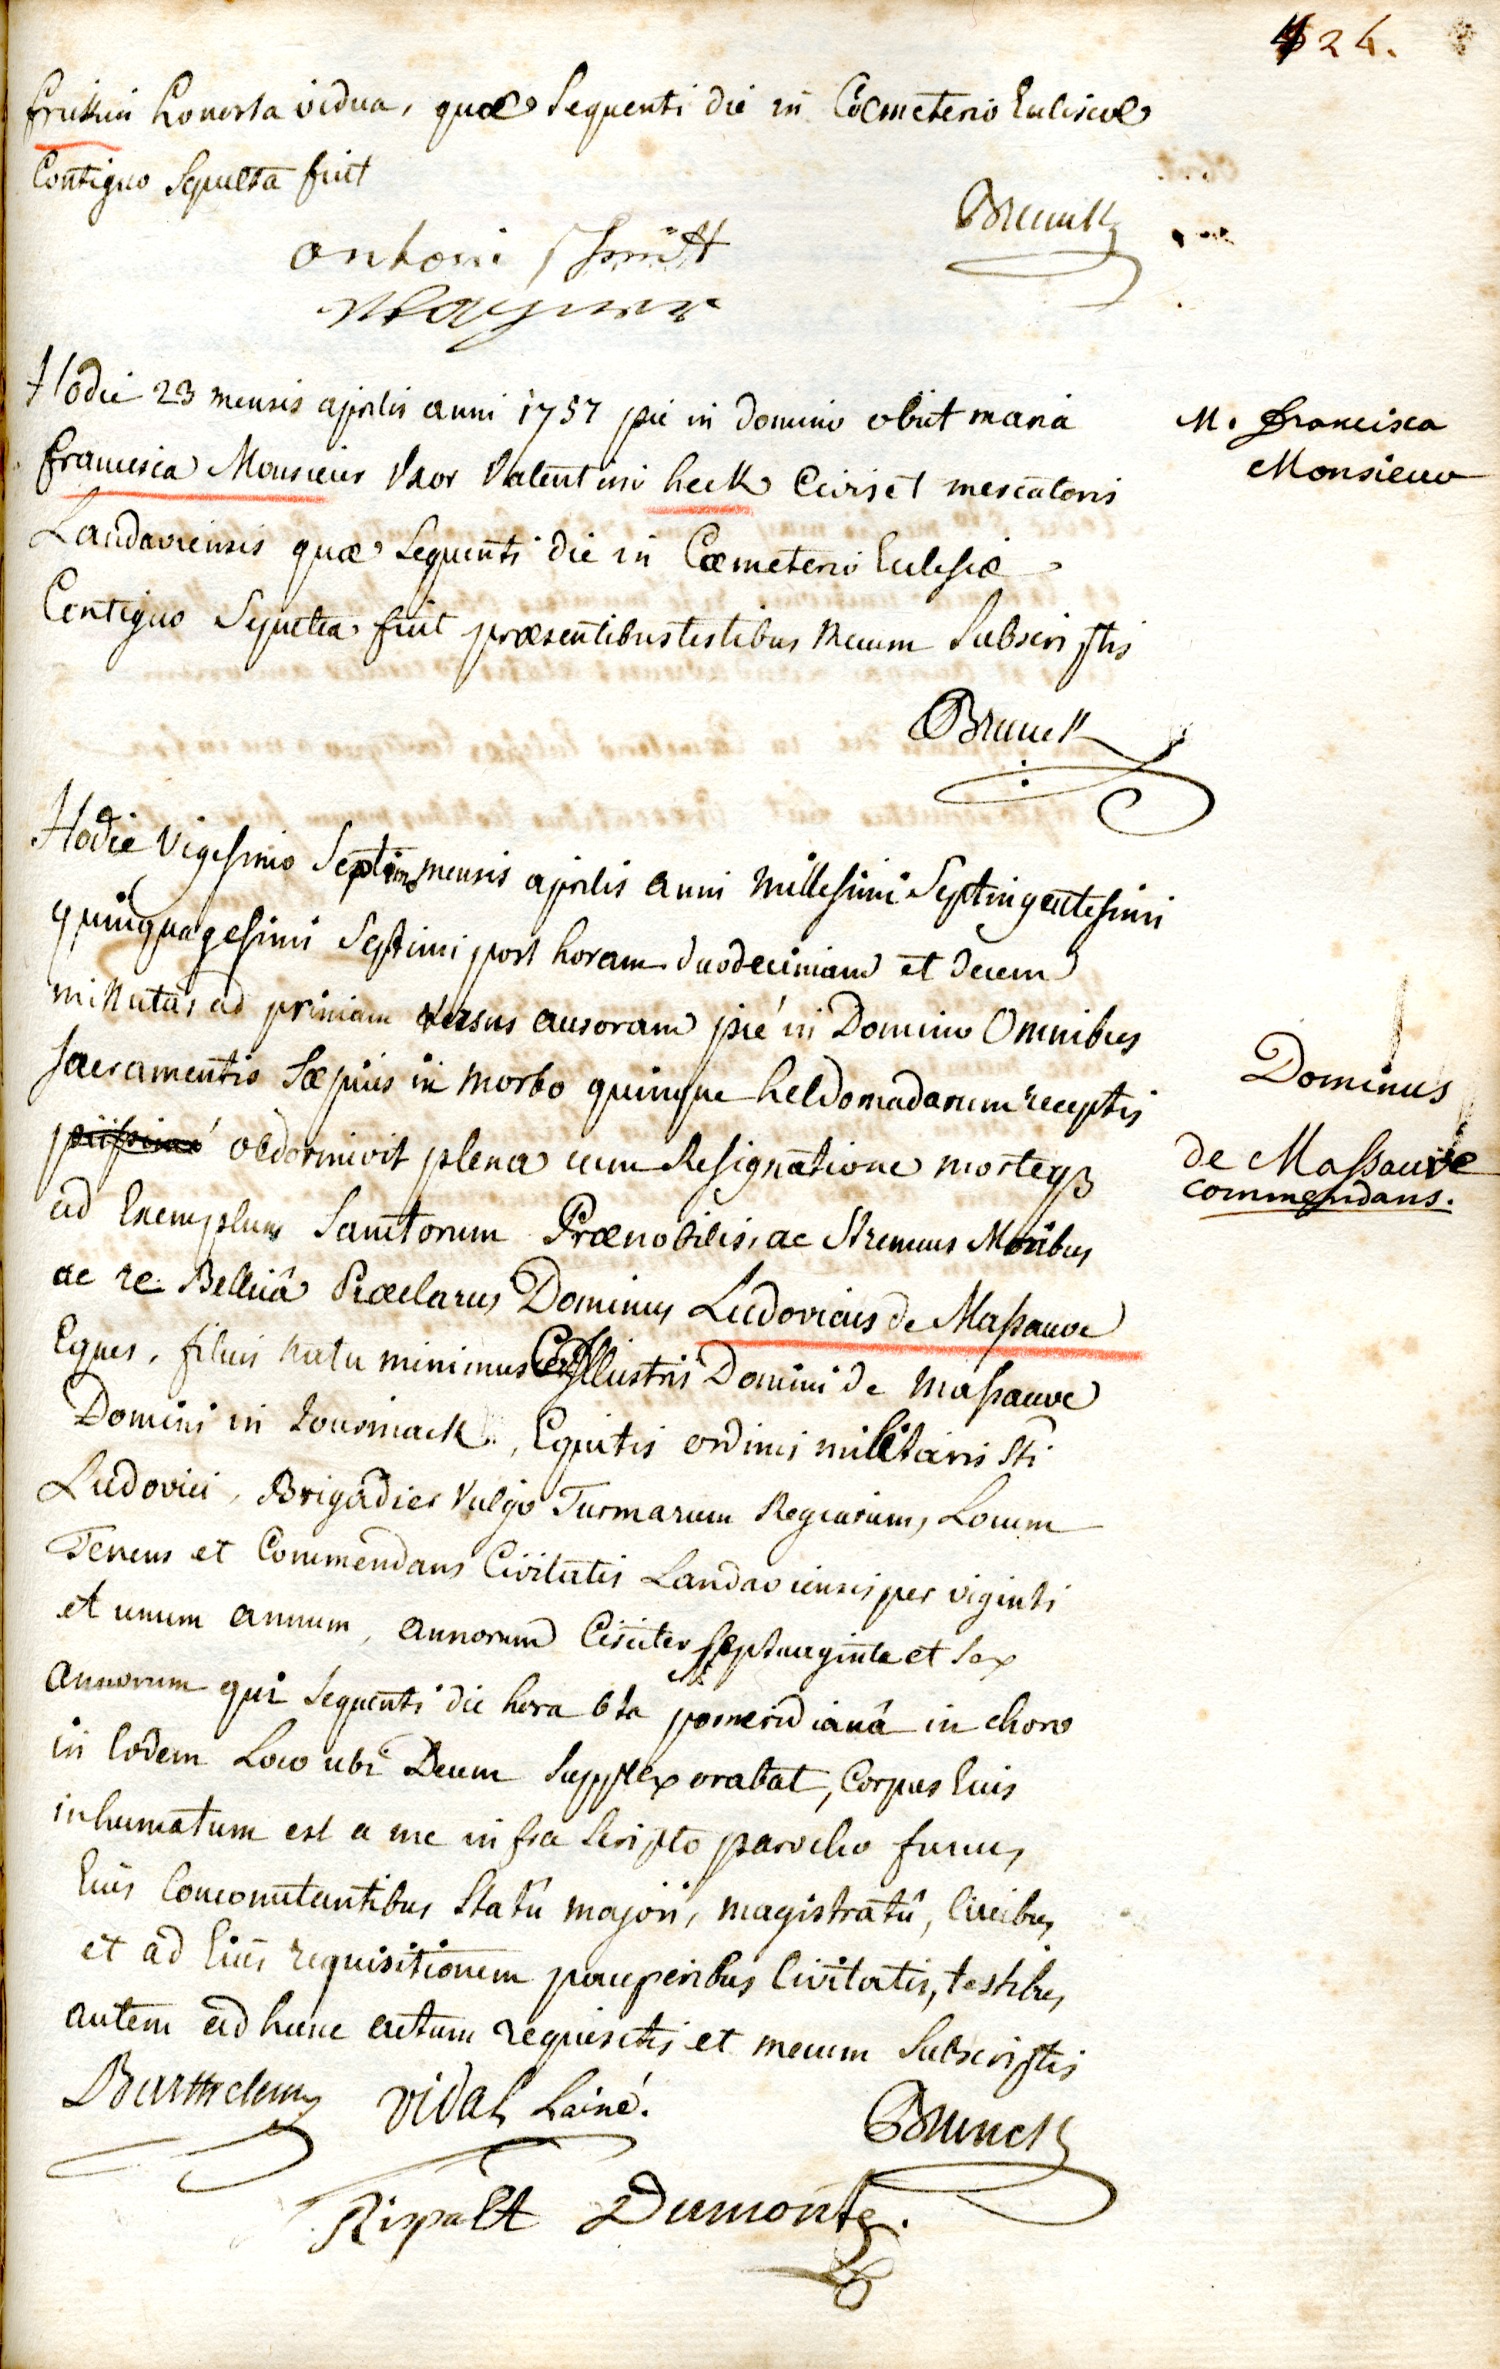 424.
honesta vidua, quæ sequenti die in Cœmeterio Eclisiæ
Contiguo Sepulta fuit
Brunck
antoni schmitt
Wagner
Hodie 23 mensis aprilis anni 1757 pie in domino obiit maria
francisca Monsieur Uxor Valentini heck Civis et mercatoris
Landaviensis quæ sequenti die in Cœmeterio Eclesiæ
Contiguo Sepulta fuit præsentibus testibus mecum Subscriptis
M. francisca
Monsieur
Brunck
Hodie Vigesimo Septimo mensis aprilis anni Millesimi Septingentesimi
quinquagesimi Septimi post horam duodecimam et decem
minutas ad primam versus auroram pié in Domino Omnibus
sacramentis Sæpius in morbo quinque hebdomadarum receptis
obdormivit plena cum Resignatione mortuus
ad Exemplum Sanctorum Prænobilis, ac Strenuus Moribus
ac re Bellicâ Præclarus Dominus Ludovicus de Massauve
Eques, filius natu minimus Illustris Domini de Massauve
Domini in Tourniack, Equitis ordinis militaris Sti
Ludovici, Brigadier Vulgo Turmarum Regiarum, Locum
Tenens et Commendans Civitatis Landaviensis per viginti
et unum annum, annorum Circiter septuaginta et sex
annorum qui sequenti die hora 6ta pomeridianâ in choro
in Eodem Loco ubi Deum supplex orabat, Corpus Eius
inhumatum est a me infra scripto parocho funus
Eius Concomitantibus Statû majori, magistratû, Civibus
et ad Eius requisitionem pauperibus Civitatis, testibus
autem ad hunc actum requisitis et mecum Subscriptis
Dominus
de Massauve
commendans.
Barthelemy Vidal Lainé.
Brunck
Rispalt Dumonte.